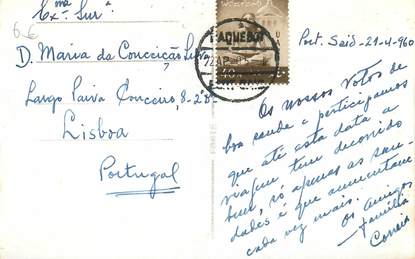 66
Exma Sura
D. Maria da Conceição Silva
Largo Paiva Couceiro, 8-2º
Lisboa
Portugal
PAQUEBOT
Port. Said-21-4-960
Os nossos votos de
boa saude e participamos
que até esta data a
viajem tem decorrido
bem, só apenas as sau-
dades é que aumentam
cada vez mais.
Os amigos
família
Correia